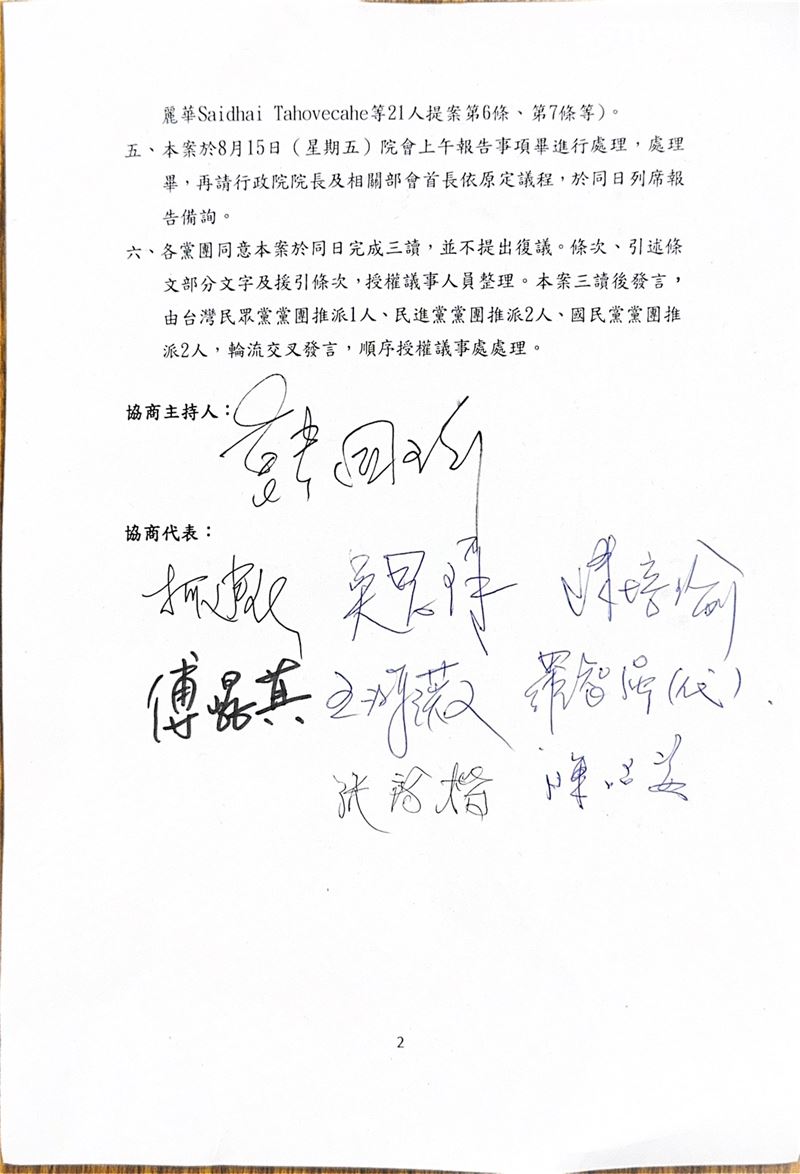 麗華Saidhai Tahovecahe等21人提案第6條、第7條等)。
五、本案於8月15日（星期五）院會上午報告事項畢進行處理，處理
畢，再請行政院院長及相關部會首長依原定議程，於同日列席報
告備詢。
六、各黨團同意本案於同日完成三讀，並不提出復議。條次、引述條
文部分文字及援引條次，授權議事人員整理。本案三讀後發言，
由台灣民眾黨黨團推派1人、民進黨黨團推派2人、國民黨黨團推
派2人，輪流交叉發言，順序授權議事處處理。
協商主持人：
韓國瑜
協商代表：
吳思瑤 陳培瑜
傅崐萁 王鴻薇 羅智強(代)
張啓楷 陳昭姿
2